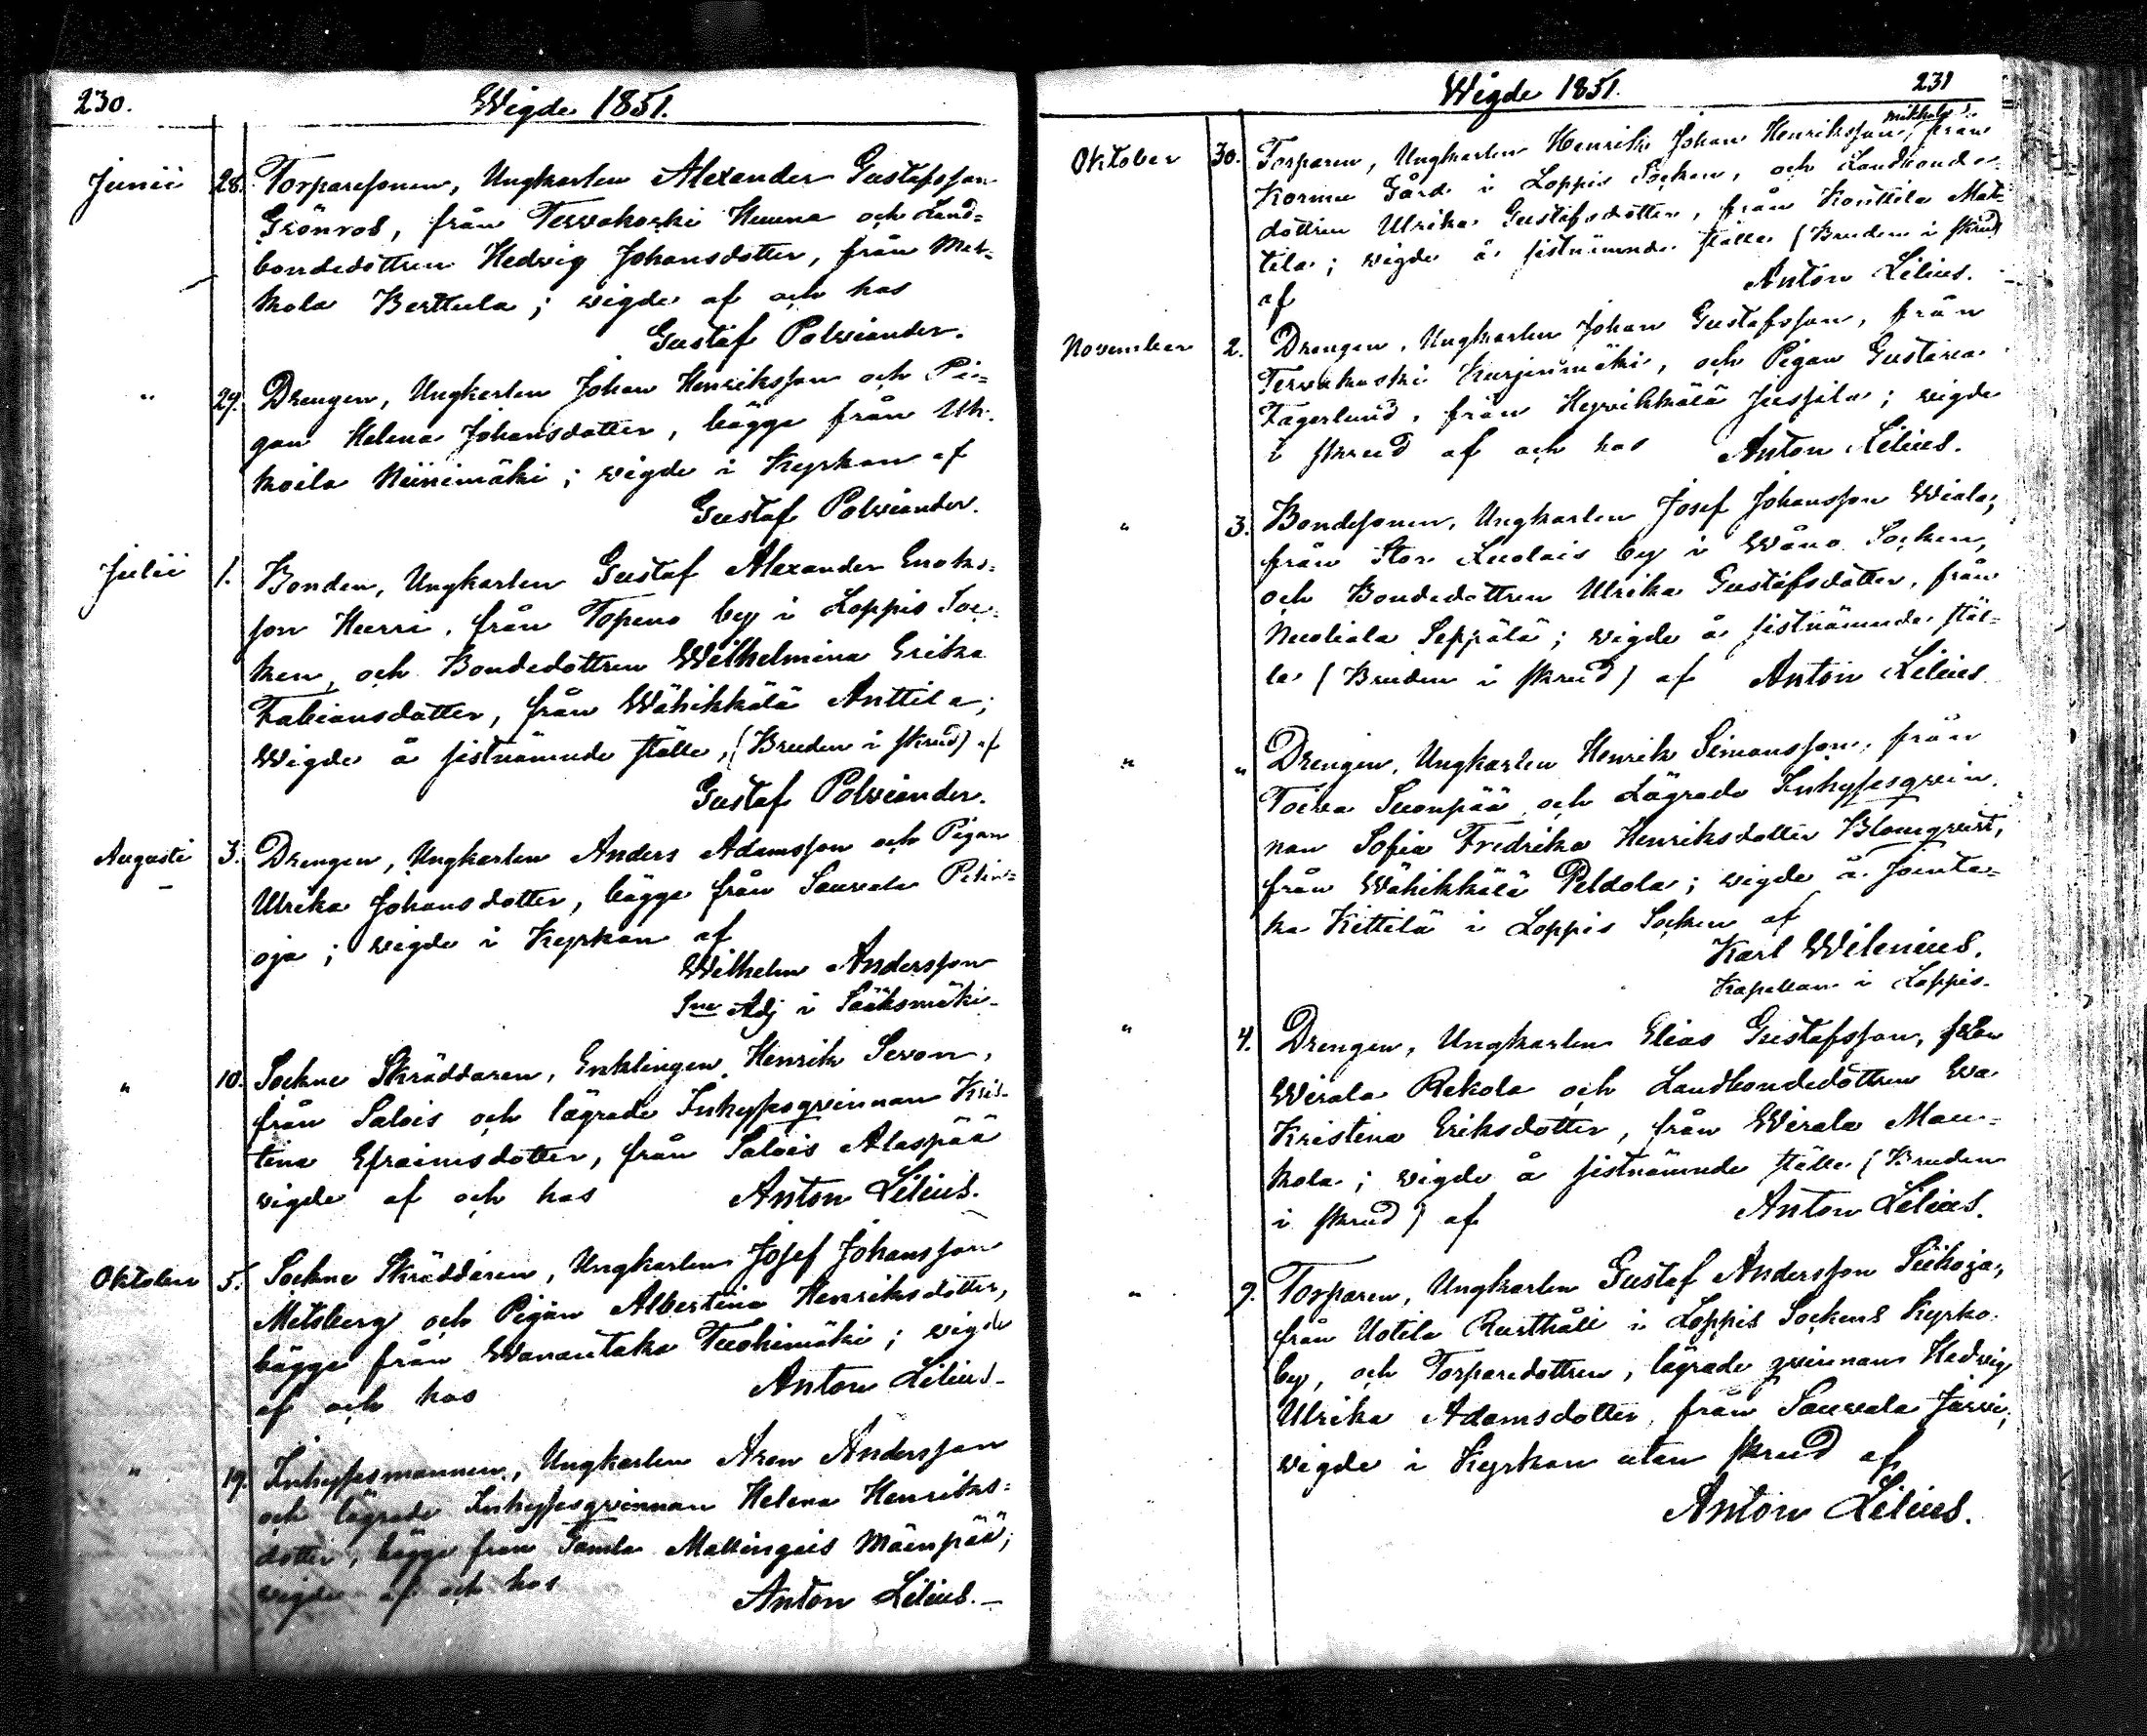 230.
Wigde 1851.
Junii 28. Torparesonen, Ungkarlen Alexander Gustafsson
Grönros, från Tervakoski Huuna och Land-
bondedottren Hedvig Johansdotter, från Mek-
kola Berttula; vigde af och hos
Gustaf Polviander.
" 29. Drengen, Ungkarlen Johan Henriksson och Pi-
gan Helena Johansdotter, bägge från Uh-
koila Niinimäki; vigde i Kyrkan af
Gustaf Polviander.
Julii 1. Bonden, Ungkarlen Gustaf Alexander Enoks-
son Heerri, från Topeno by i Loppis Soc-
ken, och Bondedottren Wilhelmina Erika
Fabiansdotter, från Wähikkälä Anttila;
Wigde å sistnämnde ställe, (Bruden i skrud) af
Gustaf Polviander.
Augusti 3. Drengen, Ungkarlen Anders Adamsson och Pigan
Ulrika Johansdotter, bägge från Saurala Petin-
oja; vigde i Kyrkan af
Wilhelm Andersson
Sne Adj i Sääksmäki
" 10. Sockne Skräddaren, Enklingen Henrik Sevon,
från Salois och lägrade Inhysesqvinnan Kris-
tina Efraimsdotter, från Salois Alaspää
vigde af och hos Anton Lilius.
Oktober 5. Sockne Skräddaren, Ungkarlen Josef Johansson
Metsberg och Pigan Albertina Henriksdotter,
bägge från Wanantaka Tuohimäki; vigde
af och hos Anton Lilius
" 19. Inhysesmannen, Ungkarlen Aron Andersson
och lägrade Inhysesqvinnan Helena Henriks-
dotter, bägge från Gamla Mallinges Mäenpää;
vigde af och hos Anton Lilius.
Wigde 1851.
231
Oktober 30. Torparen, Ungkarlen Henrik Johan Henriksson, från
Korme Gård i Loppis Socken, och Landbonde-
dottren Ulrika Gustafsdotter, från Konttila Mat-
tila; vigde å sistnämnde ställe (Bruden i skrud)
af Anton Lilius.
November 2. Drengen, Ungkarlen Johan Gustafsson, från
Tervakoski Kurjenmäki, och Pigan Gustava
Fagerlund, från Hyvikkälä Jussila; vigde
i skrud af och hos Anton Lilius.
" 3. Bondesonen, Ungkarlen Josef Johansson Wiala,
från Stor Luolais by i Wånå Socken,
och Bondedottren Ulrika Gustafsdotter, från
Nuoliala Seppälä; vigde å sistnämnde stäl-
le (Bruden i skrud) af Anton Lilius
" " Drengen, Ungkarlen Henrik Simonsson, från
Toivia Suonpää och Lägrade Inhysesqvin-
nan Sofia Fredrika Henriksdotter Blomqvist,
från Wähikkälä Peldola; vigde å Jointa-
ka Kittilä i Loppis Socken af
Karl Wilenius.
Kapellan i Loppis.
" 4. Drengen, Ungkarlen Elias Gustafsson, från
Wirala Rekola och Landbondedottren Eva
Kristina Eriksdotter, från Wirala Mau-
kola; vigde å sistnämnde ställe (Bruden
i skrud) af Anton Lilius.
" 9. Torparen, Ungkarlen Gustaf Andersson Siikoja,
från Uotila Rusthåll i Loppis Sockens Kyrko-
by, och Torparedottren, lägrade qvinnan Hedvig
Ulrika Adamsdotter, från Saurala Järvi,
vigde i Kyrkan utan skrud af
Anton Lilius.